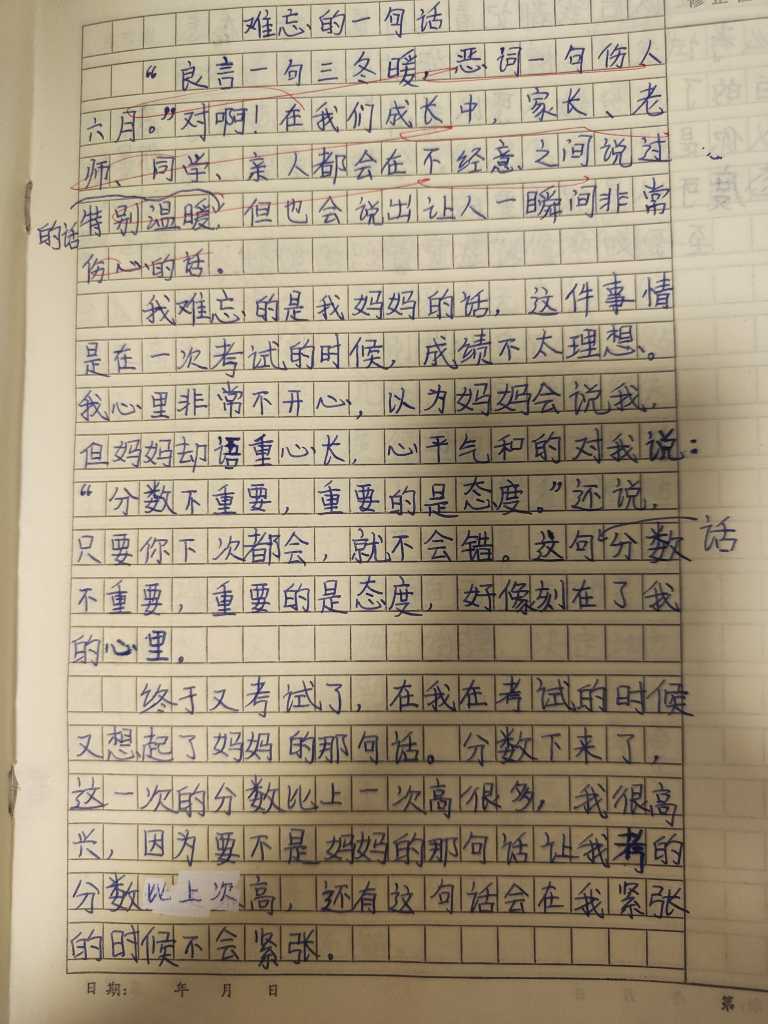 难忘的一句话
“良言一句三冬暖，恶词一句伤人
六月。”对啊！在我们成长中，家长、老
师、同学、亲人都会在不经意之间说过
特别温暖，但也会说出让人一瞬间非常
的话
伤心的话。
我难忘的是我妈妈的话，这件事情
是在一次考试的时候，成绩不太理想。
我心里非常不开心，以为妈妈会说我，
但妈妈却语重心长，心平气和的对我说：
“分数不重要，重要的是态度。”还说，
只要你下次都会，就不会错。这句“分数
话
不重要，重要的是态度，好像刻在了我
的心里。
终于又考试了，在我在考试的时候
又想起了妈妈的那句话。分数下来了，
这一次的分数比上一次高很多，我很高
兴，因为要不是妈妈的那句话让我考的
分数比上次高，还有这句话会在我紧张
的时候不会紧张。
日期： 年 月 日
第